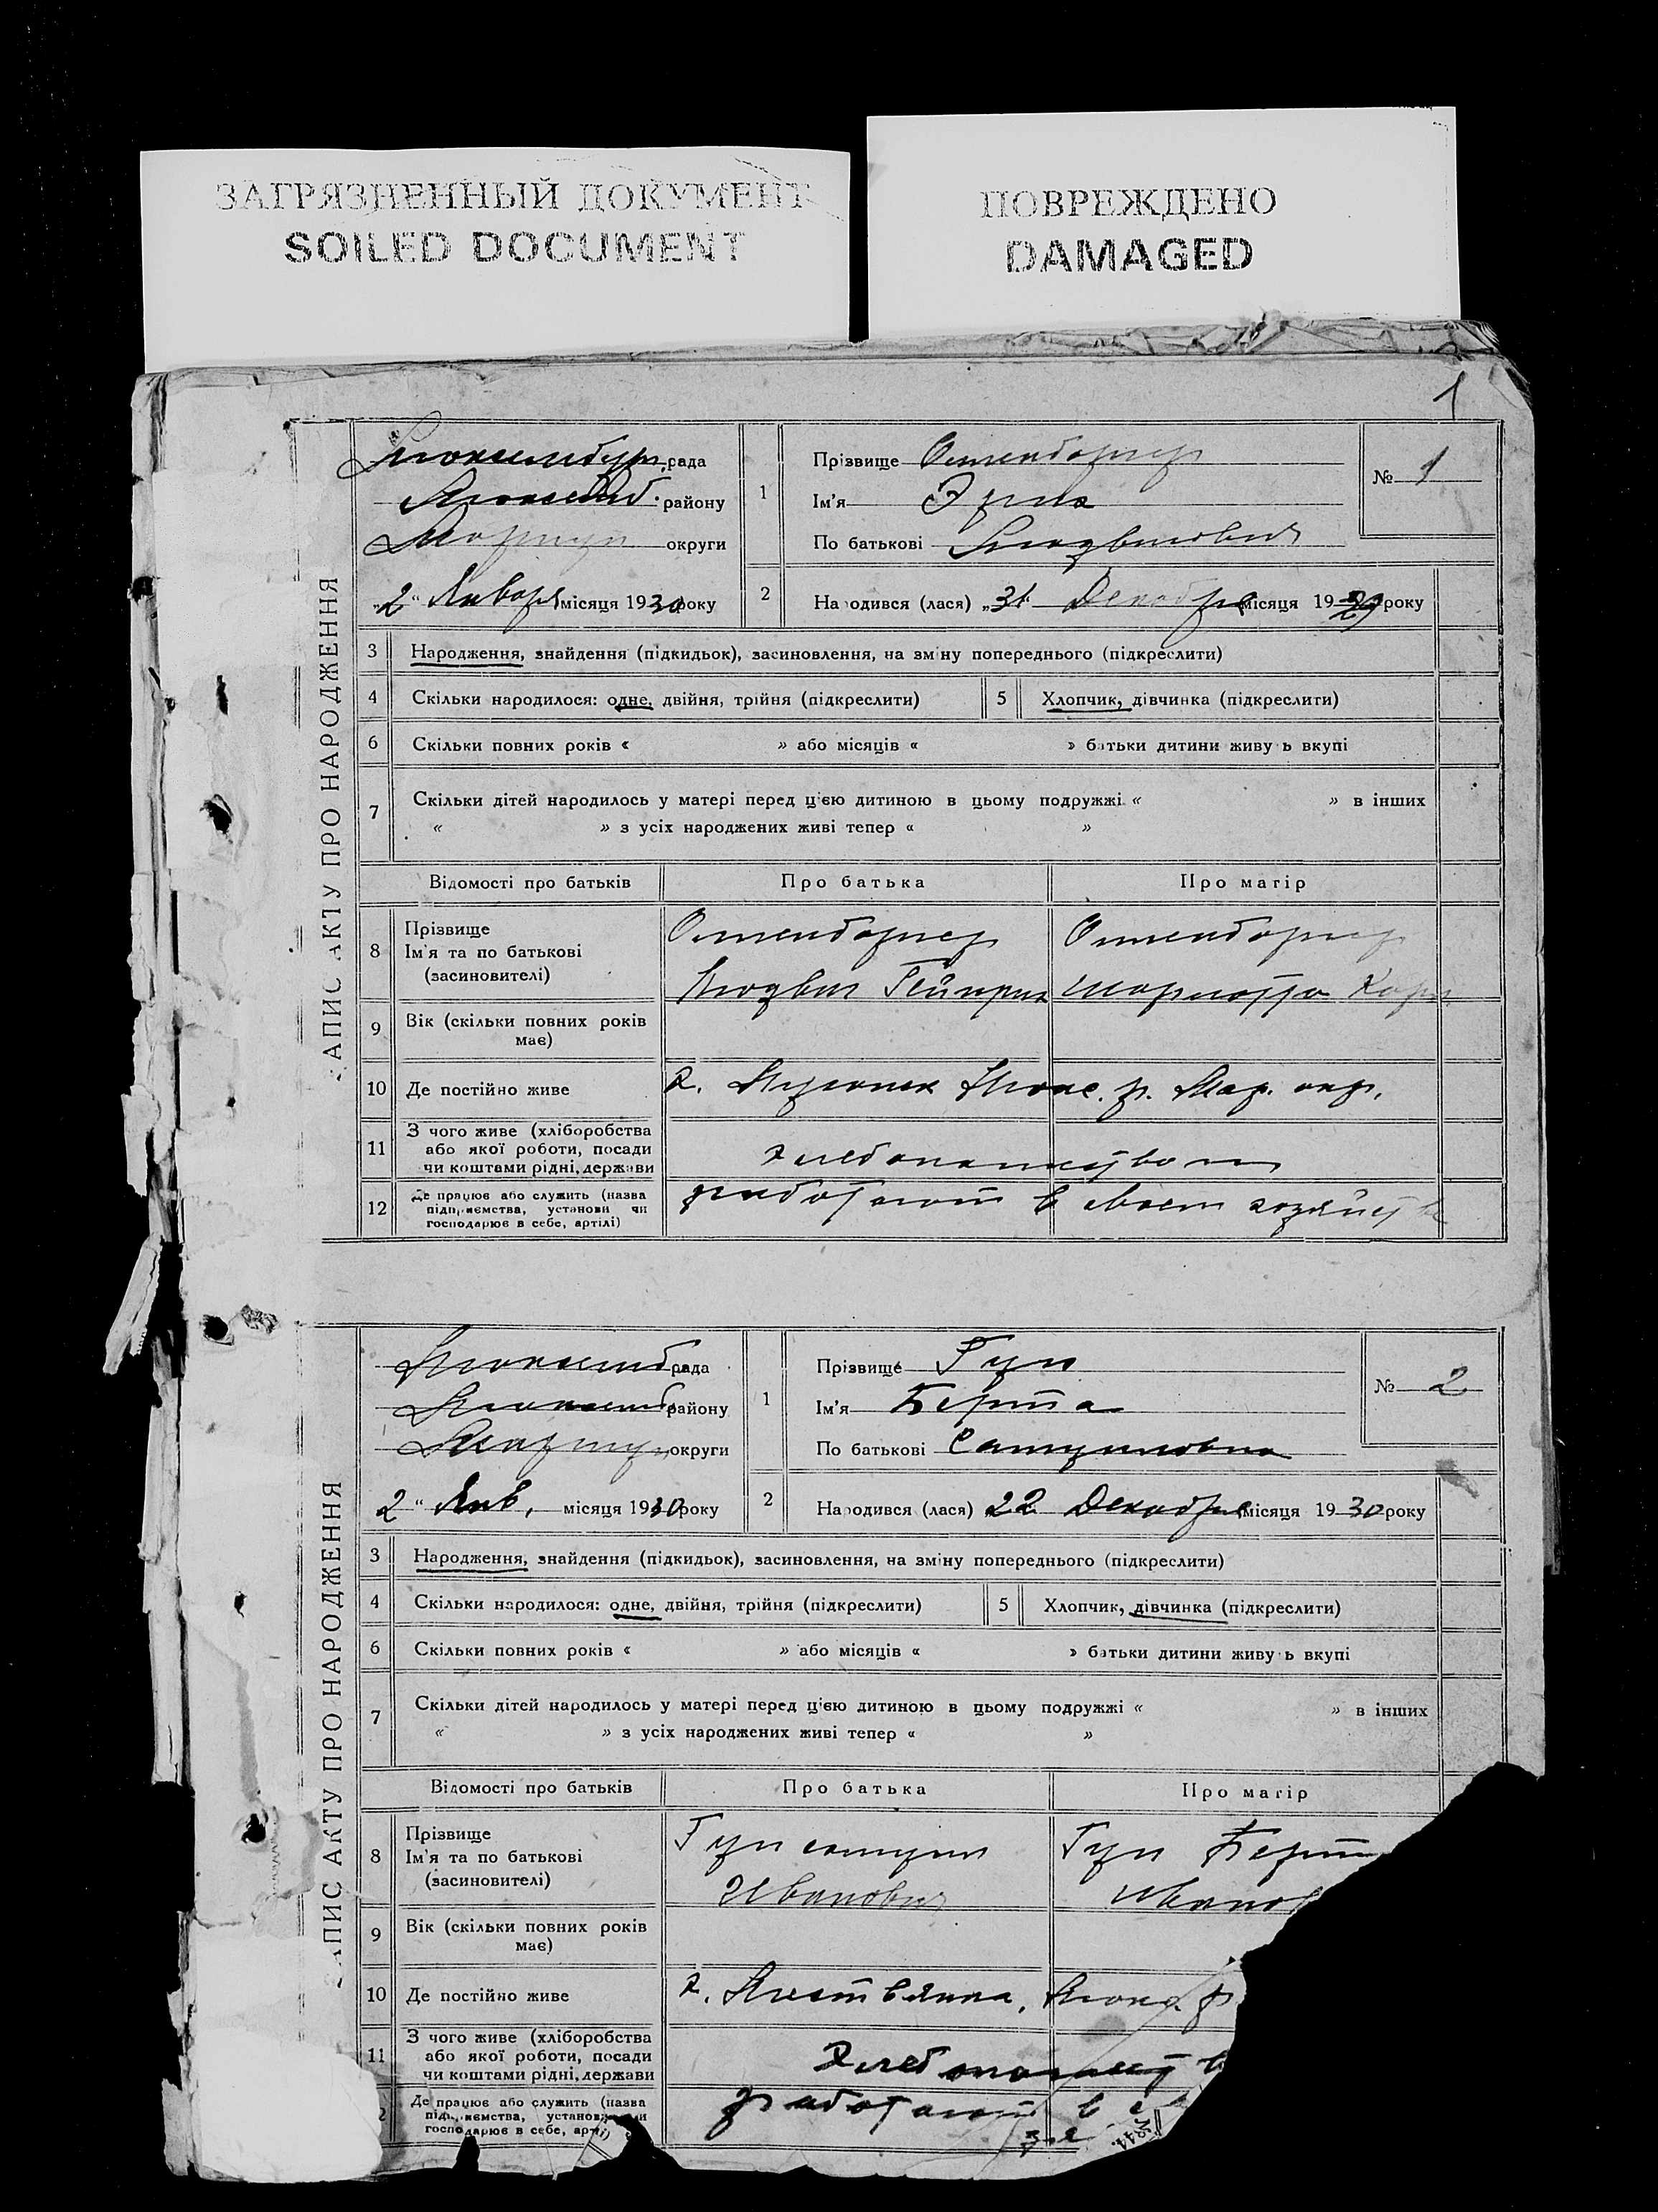 ЗАГРЯЗНЕННЫЙ ДОКУМЕНТ
SOILED DOCUMENT
ПОВРЕЖДЕНО
DAMAGED
1
АПИС АКТУ ПРО НАРОДЖЕННЯ
рада
району
округи
„2“ Января місяця 1930 року
1
Прізвище
Ім'я
По батькові Людвигович
№ 1
2
Народився (лася) „31“ Декабря місяця 1929 року
3 Народження, знайдення (підкидьок), засиновлення, на зміну попереднього (підкреслити)
4 Скільки народилося: одне, двійня, трійня (підкреслити)
5 Хлопчик, дівчинка (підкреслити)
6 Скільки повних років « » або місяців « » батьки дитини живуть вкупі
7 Скільки дітей народилось у матері перед цією дитиною в цьому подружжі « » в інших
« » з усіх народжених живі тепер « »
Відомості про батьків
Про батька
Про матір
8 Прізвище
Ім'я та по батькові
(засиновителі)
Оттенбаргер
Людвиг Гейнрих
Оттенбаргер
Шарлотта
9 Вік (скільки повних років
має)
10 Де постійно живе
х. Люкс. р. Мар. окр.
11 З чого живе (хліборобства
або якої роботи, посади
чи коштами рідні, держави
хлебопашеством
12 Де працює або служить (назва
підприємства, установи чи
господарює в себе, артілі)
работают в своем хозяйстве
АПИС АКТУ ПРО НАРОДЖЕННЯ
Люксемб рада
Люксемб району
Мариуп округи
2 “ Янв. місяця 1930 року
1
Прізвище Гун
Ім'я Берта
По батькові
№ 2
2
Народився (лася) 22 Декабря місяця 1930 року
3 Народження, знайдення (підкидьок), засиновлення, на зміну попереднього (підкреслити)
4 Скільки народилося: одне, двійня, трійня (підкреслити)
5 Хлопчик, дівчинка (підкреслити)
6 Скільки повних років « » або місяців « » батьки дитини живуть вкупі
7 Скільки дітей народилось у матері перед цією дитиною в цьому подружжі « » в інших
« » з усіх народжених живі тепер « »
Відомості про батьків
Про батька
Про матір
8 Прізвище
Ім'я та по батькові
(засиновителі)
Гун
Иванович
Гун Берт
Иванов
9 Вік (скільки повних років
має)
10 Де постійно живе
х. Люкс р
11 З чого живе (хліборобства
або якої роботи, посади
чи коштами рідні, держави
Хлебопашеств
2 Де працює або служить (назва
підприємства, установи чи
господарює в себе, арті)
работают в с